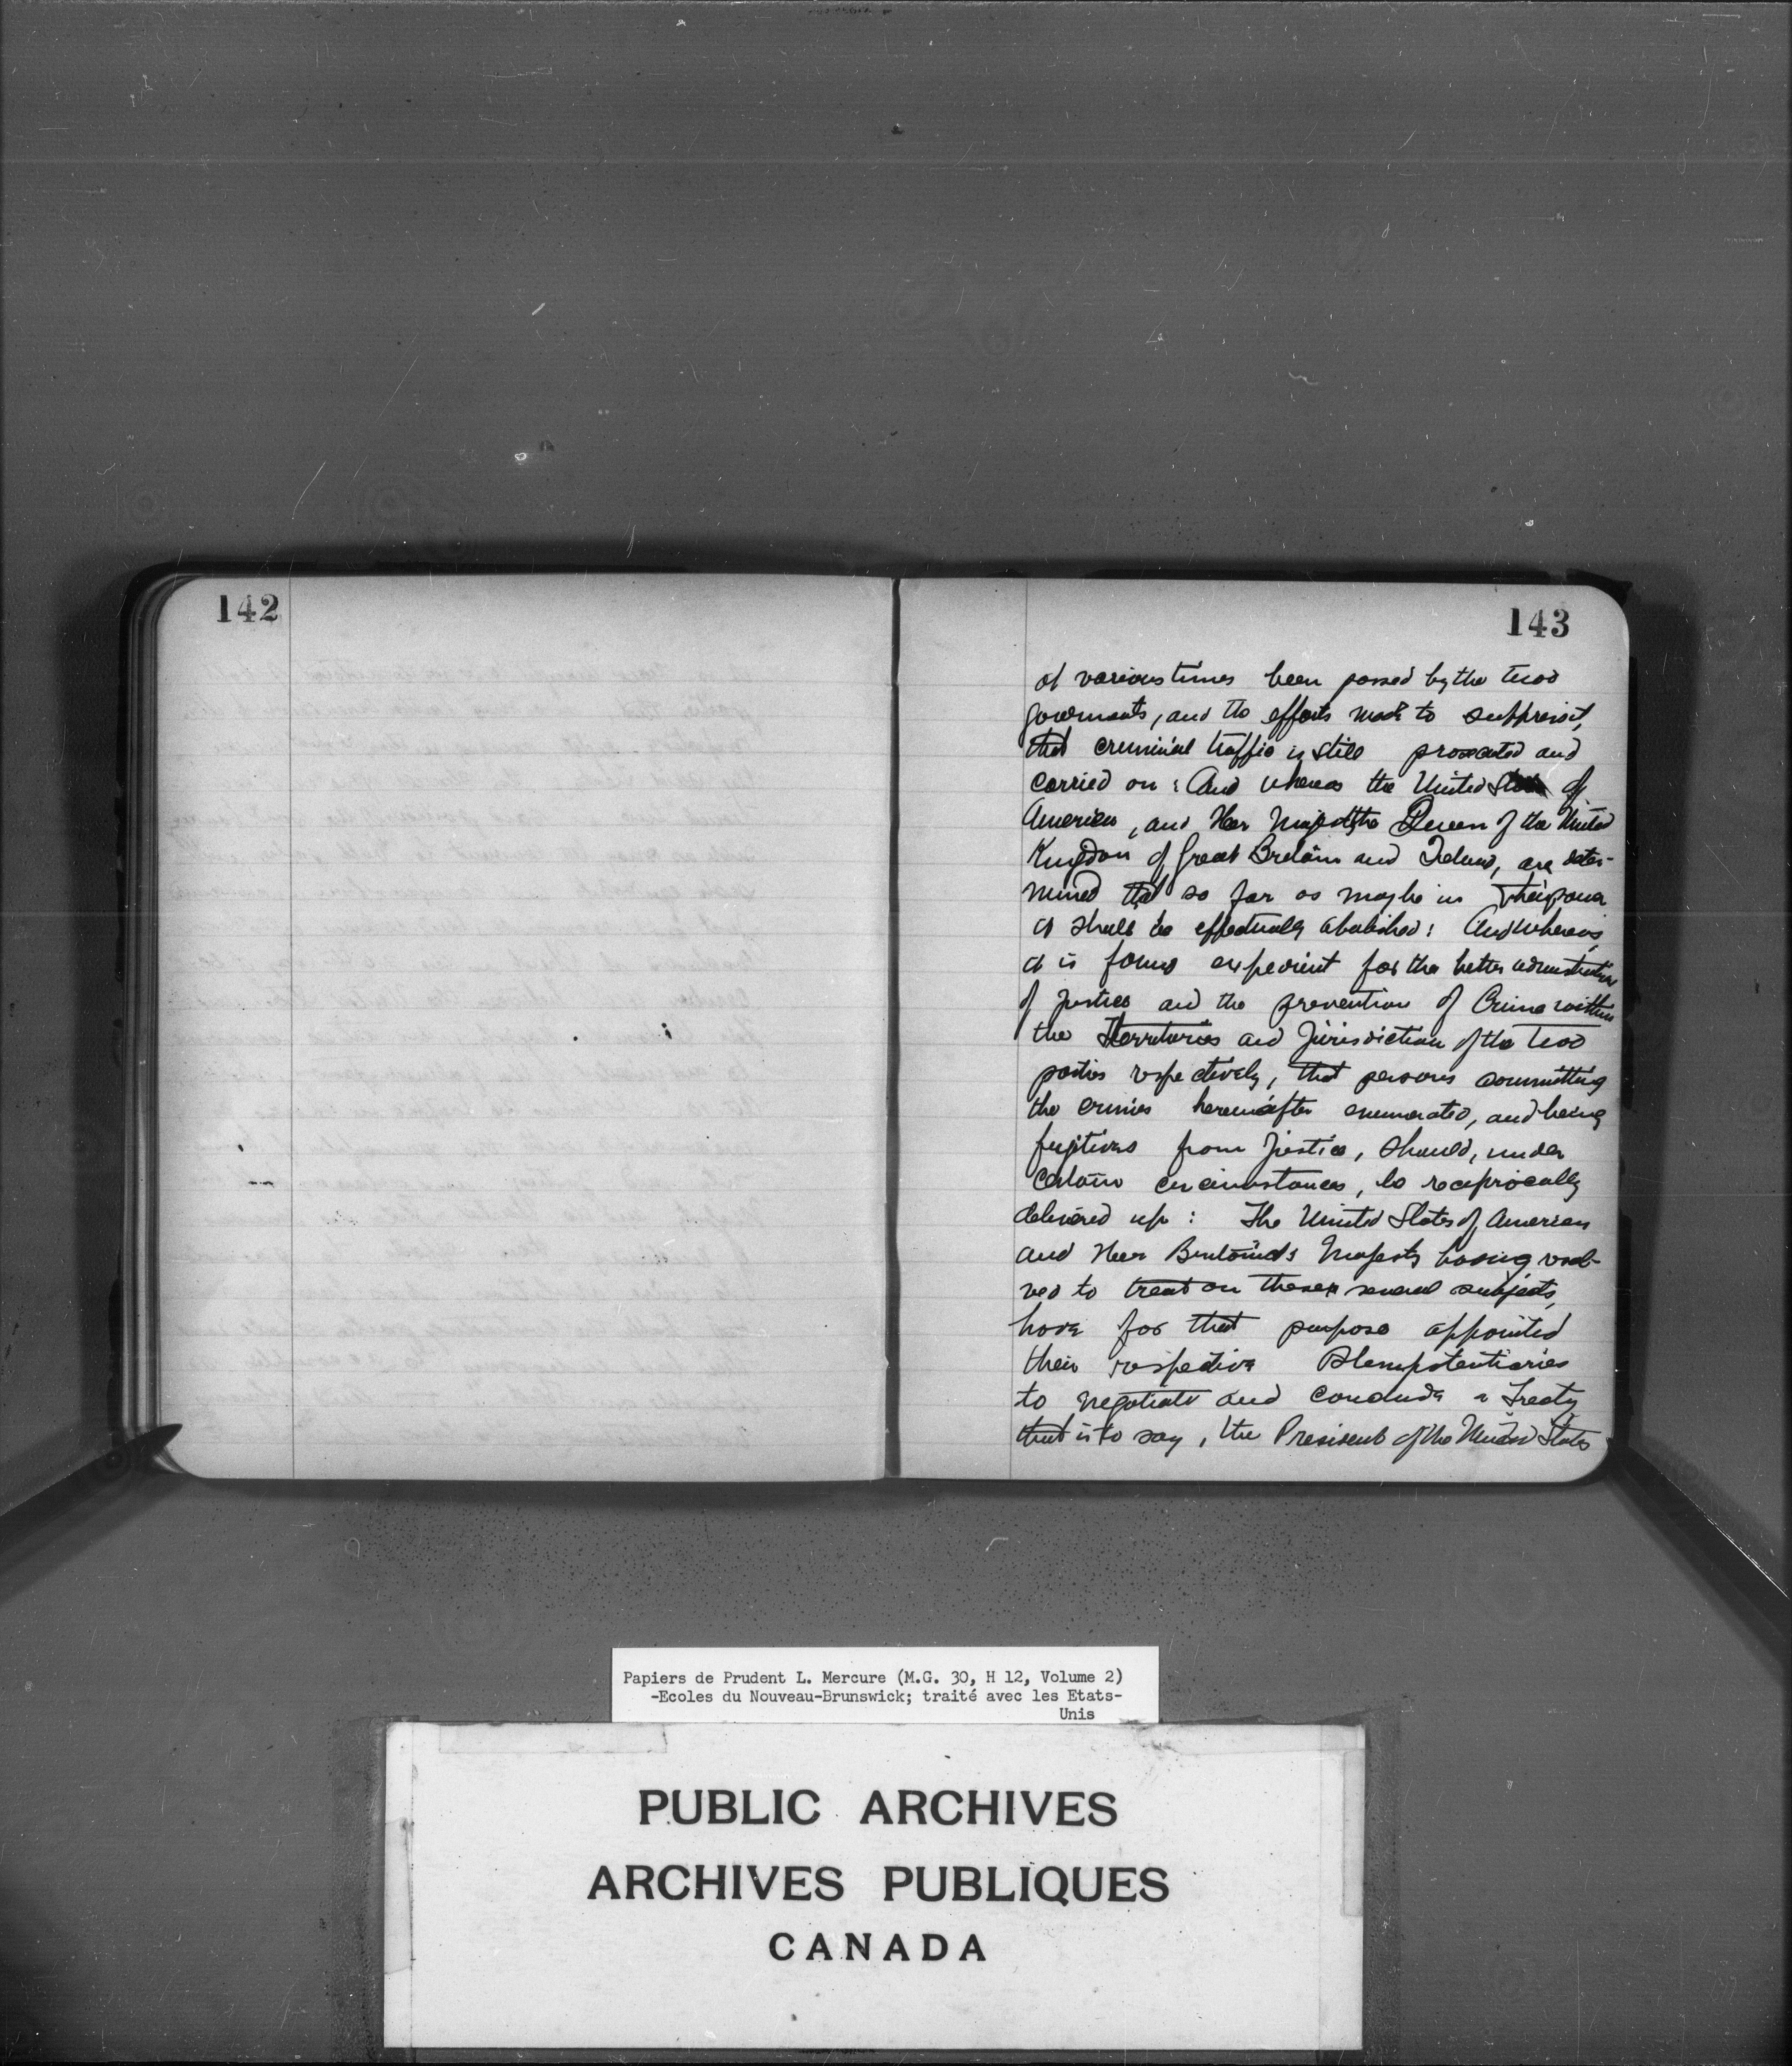 142
143
at various times been passed by the two
goverments, and the efforts made to suppress it,
that criminal traffic is still prosecuted and
carried on : And whereas the United States of
America, and Her Majesty the Queen of the United
Kingdom of Great Britain and Ireland, are deter-
mined that so far as may be in their power
it shall be effectually abolished: And whereas
it is found expedient for the better administration
of justice and the prevention of Crime within
the Territories and Jurisdiction of the two
parties respectively, that persons committing
the crimes hereinafter enumerated, and being
fugitives from justice, should, under
certain circumstances, be reciprocally
delivered up : The United States of America
and Her Majesty having resol-
ved to treat on these several subjects,
have for that purpose appointed
their respective Plenipotentiaries
to negotiate and conclude a Treaty
that is to say, the President of the United States
Papiers de Prudent L. Mercure (M.G. 30, H 12, Volume 2)
-Ecoles du Nouveau-Brunswick; traité avec les Etats-
Unis
PUBLIC ARCHIVES
ARCHIVES PUBLIQUES
CANADA